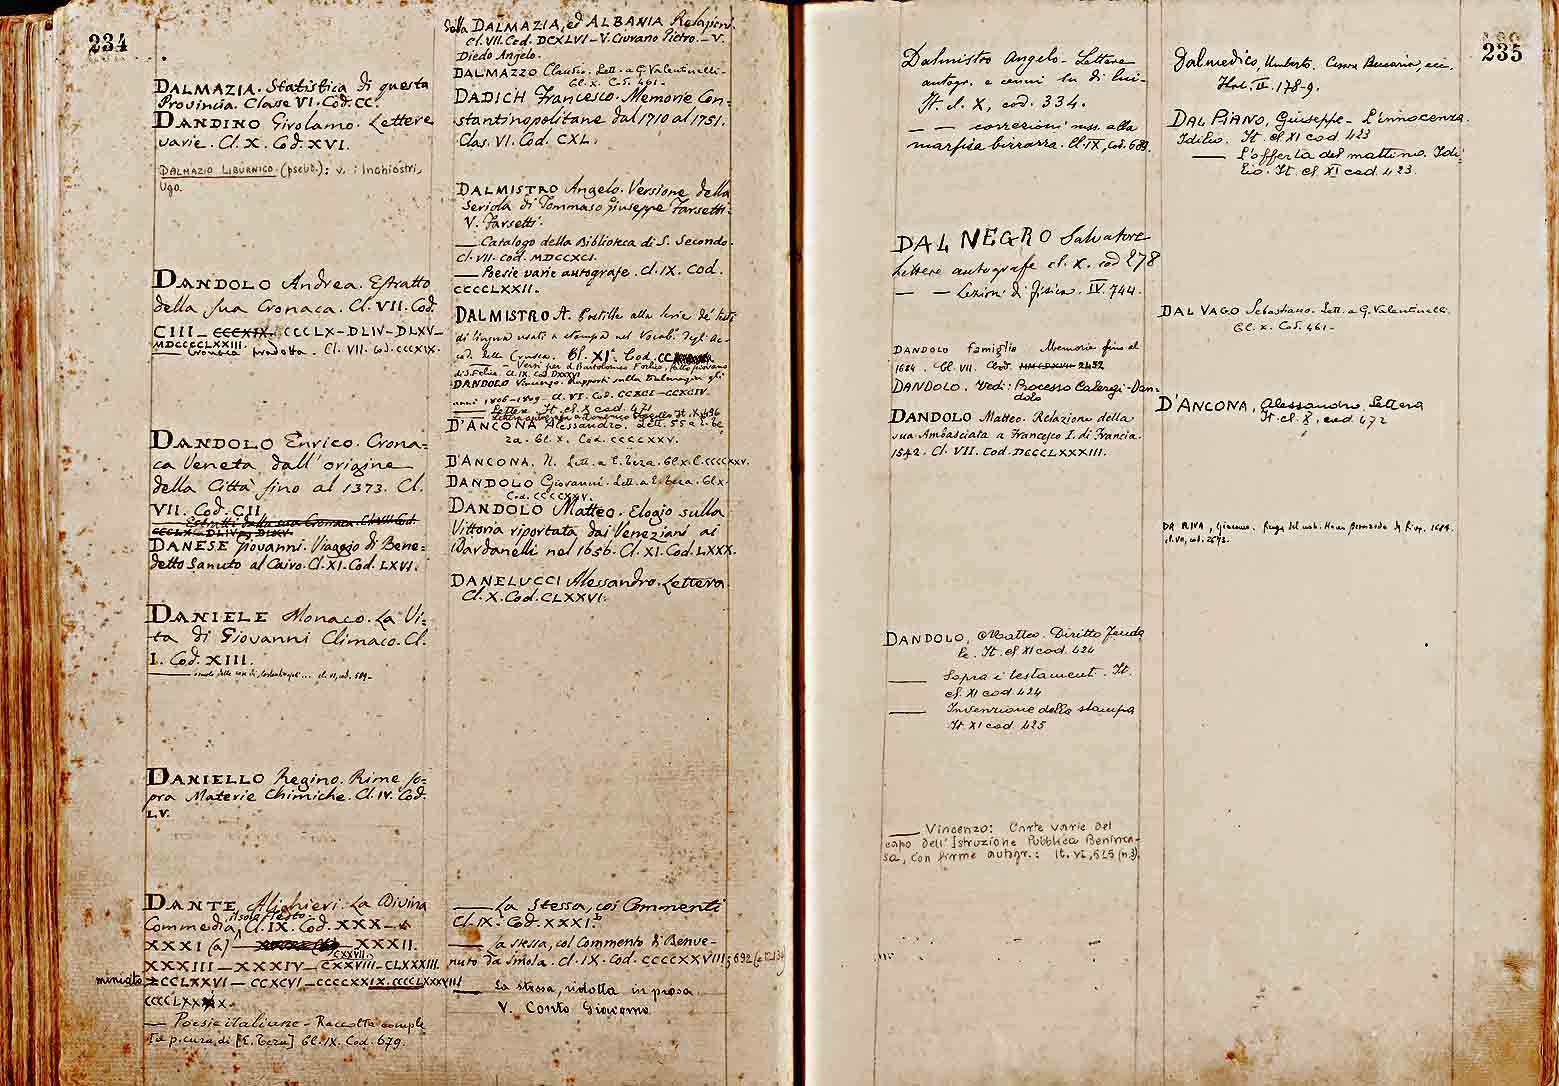 234
DALMAZIA. Statistica di questa
Provincia. Classe VI. Cod. CC.
DANDINO Girolamo. Lettere
varie. Cl. X. Cod. XVI.
DALMAZIO LIBURNICO (pseud.): v. : Inchiostri,
Ugo.
DANDOLO Andrea. Estratto
della sua Cronaca. Cl. VII. Cod.
CIII – CCCXIX. CCCLX – DLIV – DLXV –
MDCCCCLXXIII.
— Cronaca predotta. Cl. VII. Cod. CCCXIX.
DANDOLO Enrico. Crona=
ca Veneta dall' origine
della Città fino al 1373. Cl.
VII. Cod. CII.
Estratti dalla sua Cronaca. Cl. VII. Cod.
CCCLX – DLIV e DLXV.
DANESE Giovanni. Viaggio di Bene=
detto Sanuto al Cairo. Cl. XI. Cod. LXVI.
DANIELE Monaco. La Vi=
ta di Giovanni Climaco. Cl.
I. Cod. XIII.
DANIELLO Regino. Rime so=
pra Materie Chimiche. Cl. IV. Cod.
LV.
DANTE Alighieri. La Divina
Commedia, Cl. IX. Cod. XXX –
XXXI (a) XXXII.
CXXVII.
XXXIII – XXXIV – CXXVIII – CLXXXIII.
miniato CCLXXVI – CCXCVI – CCCCXXIX. CCCCLXXXVIII
— Poesie italiane – Raccolta comple
ta p. cura di [E. Teza] Cl. IX. Cod. 679.
della DALMAZIA, ed ALBANIA Relazioni.
Cl. VII. Cod. DCXLVI – V. Civrano Pietro. – V.
Diedo Angelo.
DALMAZZO Claudio. Lett. a G. Valentinelli –
Cl. X. Cod. 461 –
DADICH Francesco. Memorie Con=
stantinopolitane dal 1710 al 1751.
Clas. VI. Cod. CXL.
DALMISTRO Angelo. Versione della
Seriola di Tommaso Giuseppe Farsetti.
V. Farsetti.
— Catalogo della Biblioteca di S. Secondo.
Cl. VII. Cod. MDCCXCI.
— Poesie varie autografe. Cl. IX. Cod.
CCCCLXXII.
DALMISTRO A. Postille alla Serie de' testi
di lingua usati a stampa nel Vocab.º degl' Ac=
cad. della Crusca. Cl. XI. Cod. CC
DANDOLO Vincenzo. Rapporti sulla Dalmazia gli
anni 1806–1809. Cl. VI. Cod. CCXCI – CCXCIV.
— Lettere It. cl. X cod. 471
D'ANCONA Alessandro. Lett. 55 a E. Te
za. Cl. X. Cod. CCCCXXV.
D'ANCONA. N. Lett. a E. Teza. Cl. X. C. CCCCXXV.
DANDOLO Giovanni. Lett. a E. Teza. Cl. X.
Cod. CCCCXXV.
DANDOLO Matteo. Elogio sulla
Vittoria riportata dai Veneziani ai
Dardanelli nel 1656. Cl. XI. Cod. LXXX.
DANELUCCI Alessandro. Lettera.
Cl. X. Cod. CLXXVI.
— La stessa, coi Commenti
Cl. IX. Cod. XXXI. b
— La stessa, col Commento di Benve=
nuto da Imola. Cl. IX. Cod. CCCCXXVIII; 692
— La stessa, ridotta in prosa.
V. Conto Giacomo
235
Dalmistro Angelo – Lettere
autogr. e cenni su di lui –
It. cl. X, cod. 334.
— — correzioni mss. alla
marfisa bizzarra. Cl. IX, cod. 689.
DAL NEGRO Salvatore
Lettere autografe cl. X. cod 278
— — Lezioni di fisica. IV. 744.
DANDOLO famiglia Memorie fino al
1684. Cl. VII. Cod. MMCDXVII 2452
DANDOLO. Vedi: Processo Calergi-Dan=
dolo
DANDOLO Matteo. Relazione della
sua Ambasciata a Francesco I. di Francia.
1542. Cl. VII. Cod. DCCCLXXXIII.
DANDOLO, Matteo. Diritto feuda
le. It. cl XI cod. 424
— Sopra i testamenti. It.
cl. XI cod 424
— Invenzione della stampa
It XI cod 425
— Vincenzo: Carte varie del
capo dell'Istruzione Pubblica Beninca=
sa, con firme autogr.: It. VI, 525 (n 3).
Dalmedico, Umberto. Cesare Beccaria, ecc.
DAL PIANO, Giuseppe – L'innocenza.
Idilio. It. cl XI cod 423
— L'offerta del mattino. Idi=
lio. It. cl. XI cod. 423.
DAL VAGO Sebastiano. Lett. a G. Valentinelli.
Cl. X. Cod. 461 –
D'ANCONA, Alessandro, Lettera
It. cl. X, cod. 472
DA RIVA, Giacomo.
cl. VII, cod. 2672.